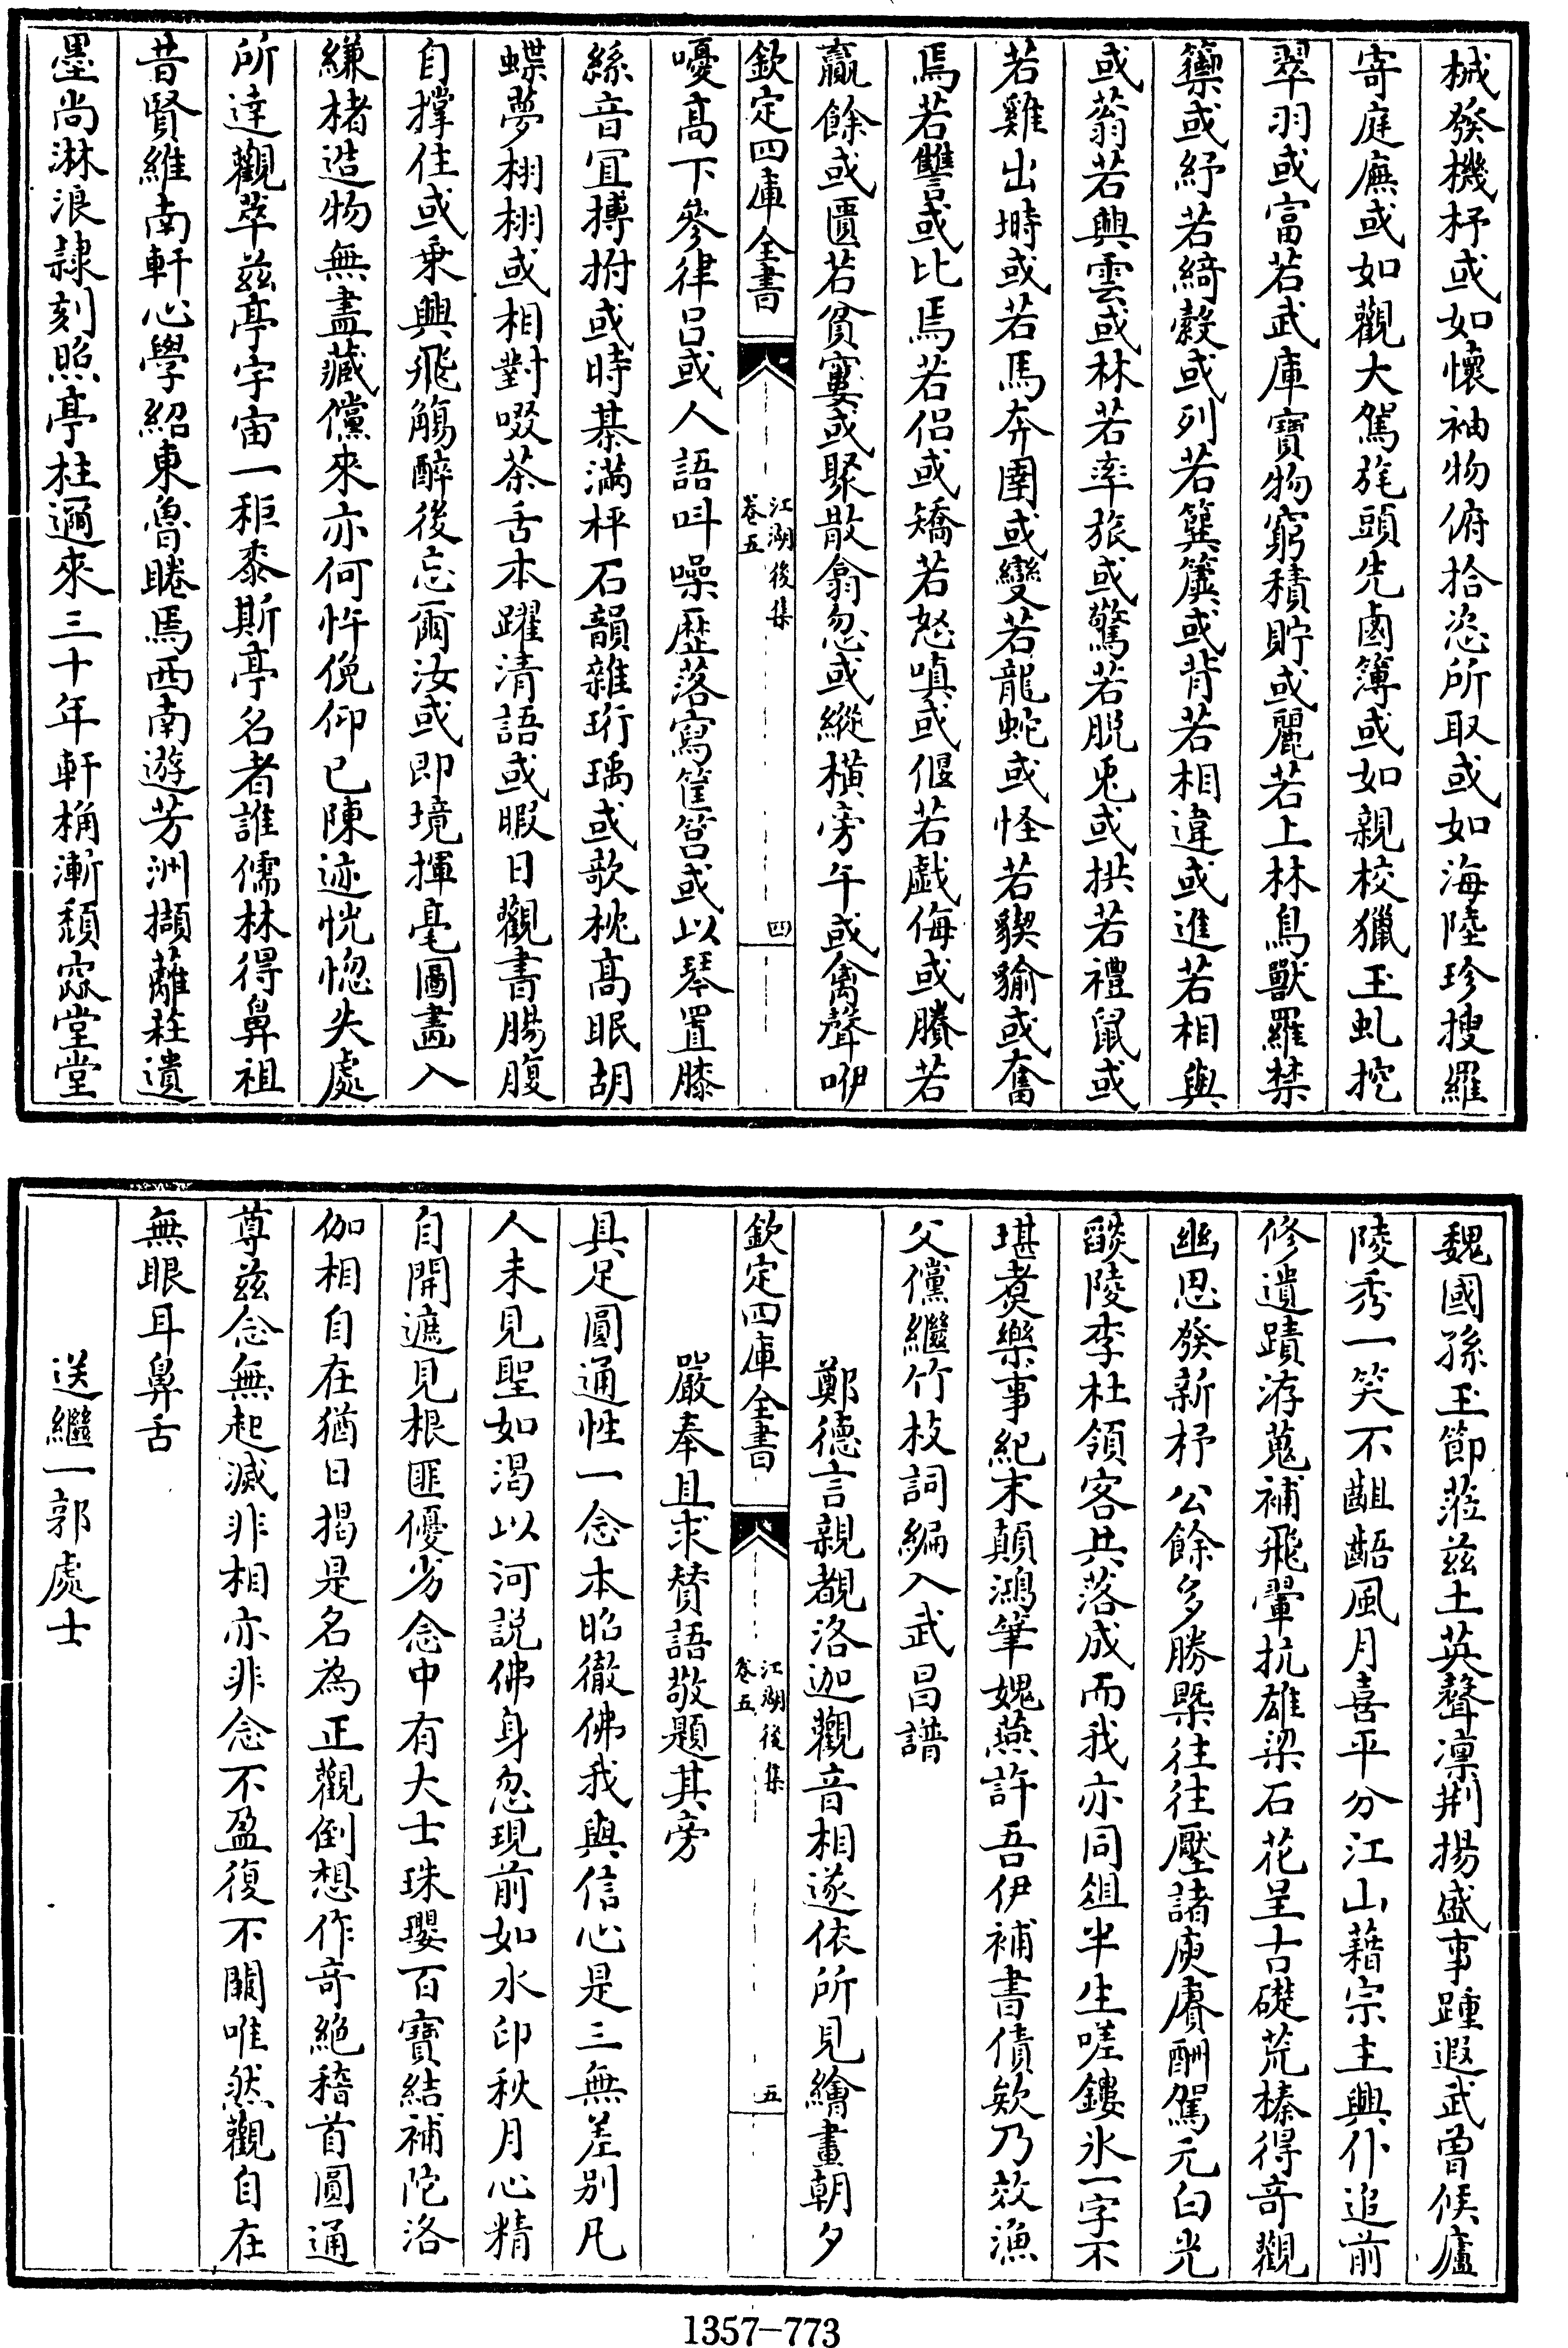 械發機杼或如懷袖物俯拾恣所取或如海陸珍搜羅
寄庭廡或如觀大駕旄頭先鹵簿或如親校獵玉虬挖
翠羽或富若武庫寶物窮積貯或麗若上林鳥獸羅禁
籞或紓若綺縠或列若簨簴或背若相違或進若相與
或蓊若興雲或林若率旅或驚若脫兎或拱若禮鼠或
若雞出塒或若馬奔圉或變若龍蛇或怪若貏貐或奮
焉若讐或比焉若侣或矯若怒嗔或偃若戱侮或賸若
贏餘或匱若貧窶或聚散翕忽或縱橫旁午或禽聲咿
欽定四庫全書
江湖後集
卷五
四
嚘高下參律吕或人語呌噪歷落寫筐筥或以琴置膝
絲音宜搏拊或時棊滿枰石韻雜珩瑀或歌枕高眠胡
蝶夢栩栩或相對啜茶舌本躍清語或暇日觀書腸腹
自撑住或乗興飛觴醉後忘爾汝或即境揮毫圖畫入
縑楮造物無盡藏儻來亦何忤俛仰已陳迹恍惚失處
所達觀萃兹亭宇宙一秬黍斯亭名者誰儒林得鼻祖
昔賢維南軒心學紹東魯睠焉西南遊芳洲擷蘺莊遺
墨尚淋浪隷刻照亭柱邇來三十年軒桷漸頽窳堂堂
魏國孫玉節涖兹土英聲凛荆揚盛事踵遐武曾候廬
陵秀一笑不齟齬風月喜平分江山藉宗主興仆追前
修遺蹟洊蒐補飛翬抗雄梁石花呈古礎荒榛得竒觀
幽思發新杼公餘多勝槩往往壓諸庾賡酬駕元白光
燄陵李杜領客共落成而我亦同俎半生嗟鏤氷一字不
堪煑樂事紀末顛鴻筆媿燕許吾伊補書債欸乃效漁
父儻繼竹枝詞編入武昌譜
鄭德言親覩洛迦觀音相遂依所見繪畫朝夕
欽定四庫全書
江湖後集
卷五
五
嚴奉且求賛語敬題其旁
具足圓通性一念本昭徹佛我與信心是三無差别凡
人未見聖如渇以河説佛身忽現前如水印秋月心精
自開遮見根匪優劣念中有大士珠瓔百寶結補陀洛
伽相自在猶日揭是名為正觀倒想作竒絶稽首圓通
尊兹念無起滅非相亦非念不盈復不闕唯然觀自在
無眼耳鼻舌
送繼一郭處士
1357-773